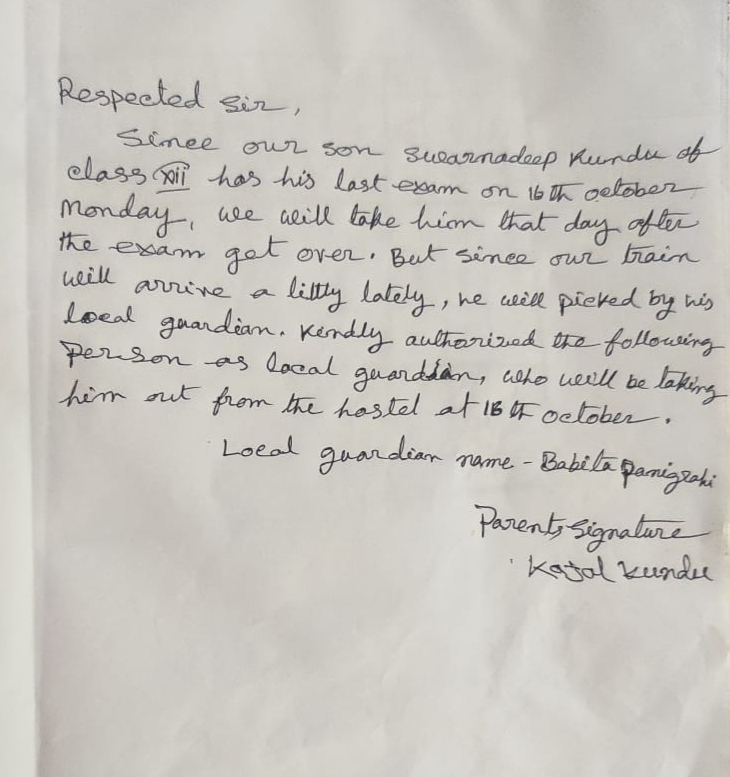 Respected Sir,
Since our son Swarnadeep Kundu of
class XII has his last exam on 16th october
Monday, we will take him that day after
the exam get over. But since our train
will arrive a littly lately, he will picked by his
local guardian. Kindly authorized the following
person as local guardian, who will be taking
him out from the hostel at 16th october.
Local guardian name - Babita Panigrahi
Parents signature
Kajal Kundu